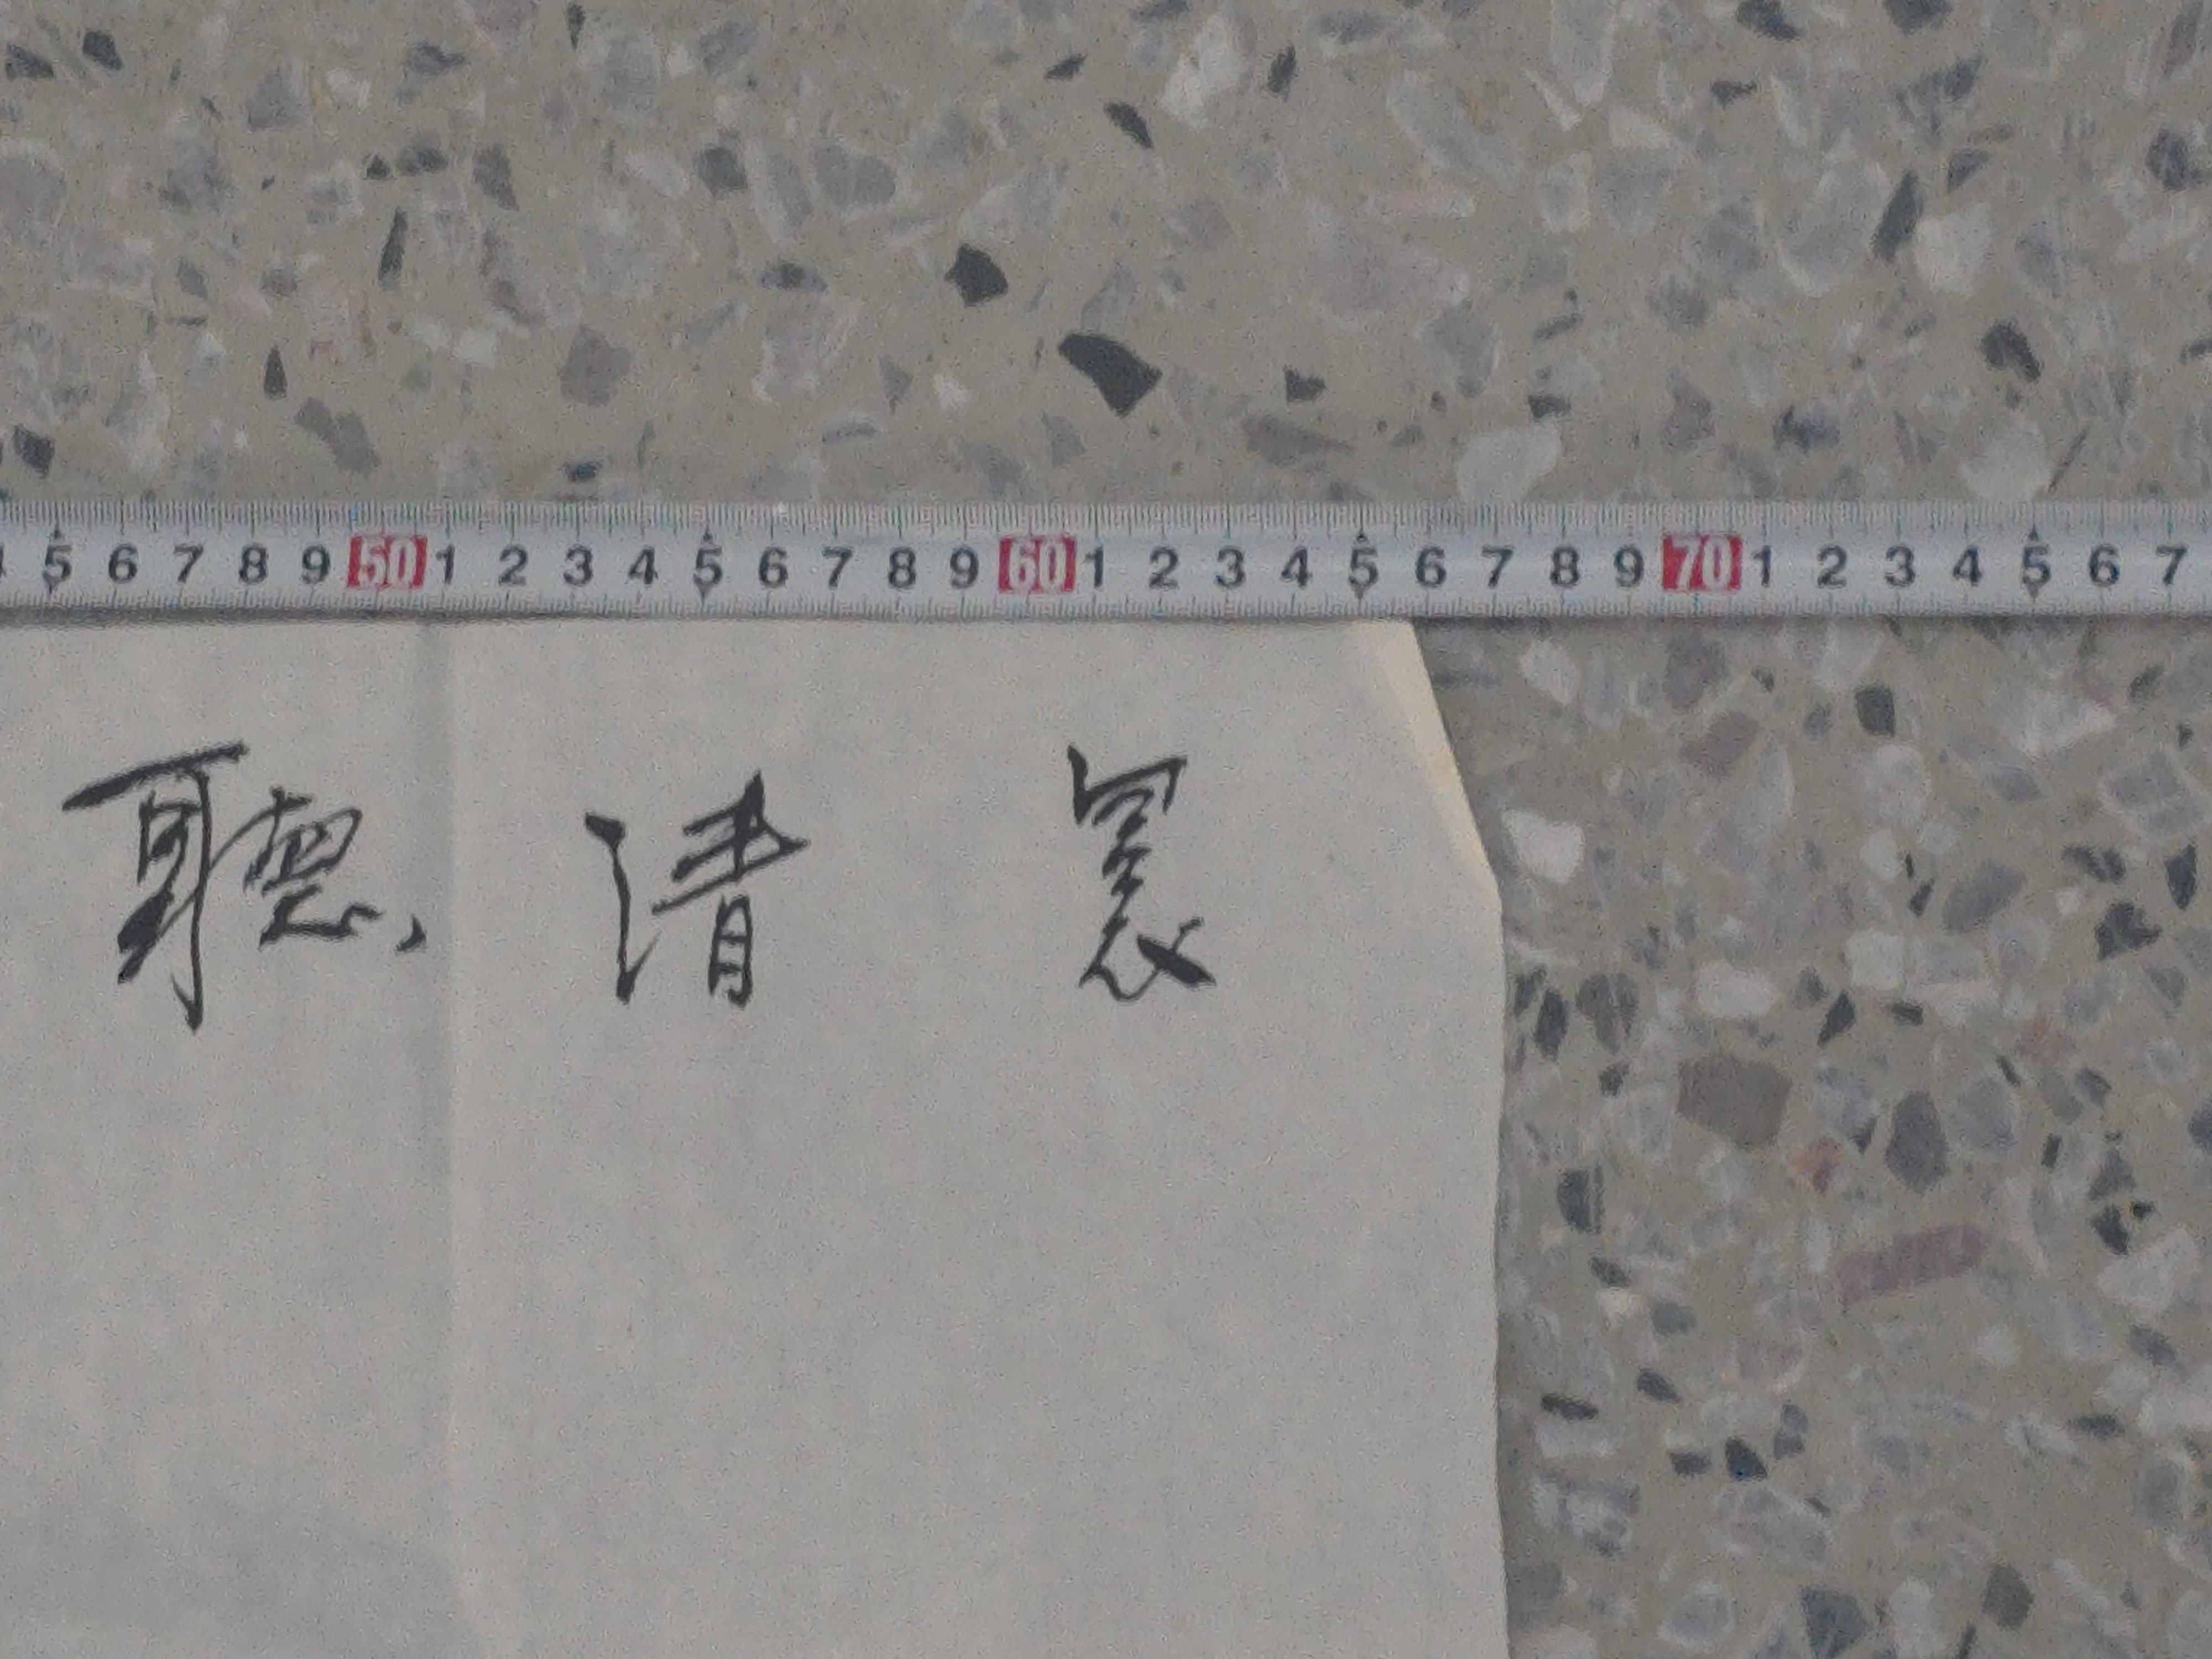 5 6 7 8 9 50 1 2 3 4 5 6 7 8 9 60 1 2 3 4 5 6 7 8 9 70 1 2 3 4 5 6 7
聽 清